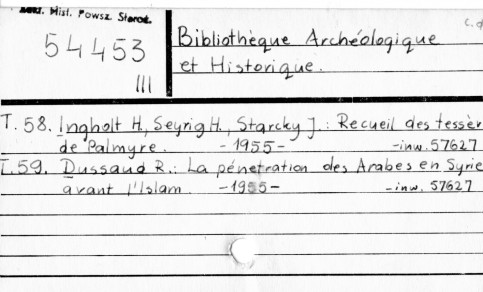 Hist. Powsz. Starož.
c.d
54453
III
Bibliothèque Archéologique
et Historique.
T. 58. Ingholt H., Seyrig H., Starcky J.: Recueil des tessèr
de Palmyre. -1955- -inw. 57627
T. 59. Dussaud R.: La pénetration des Arabes en Syrie
avant l'Islam -1955- -inw. 57627